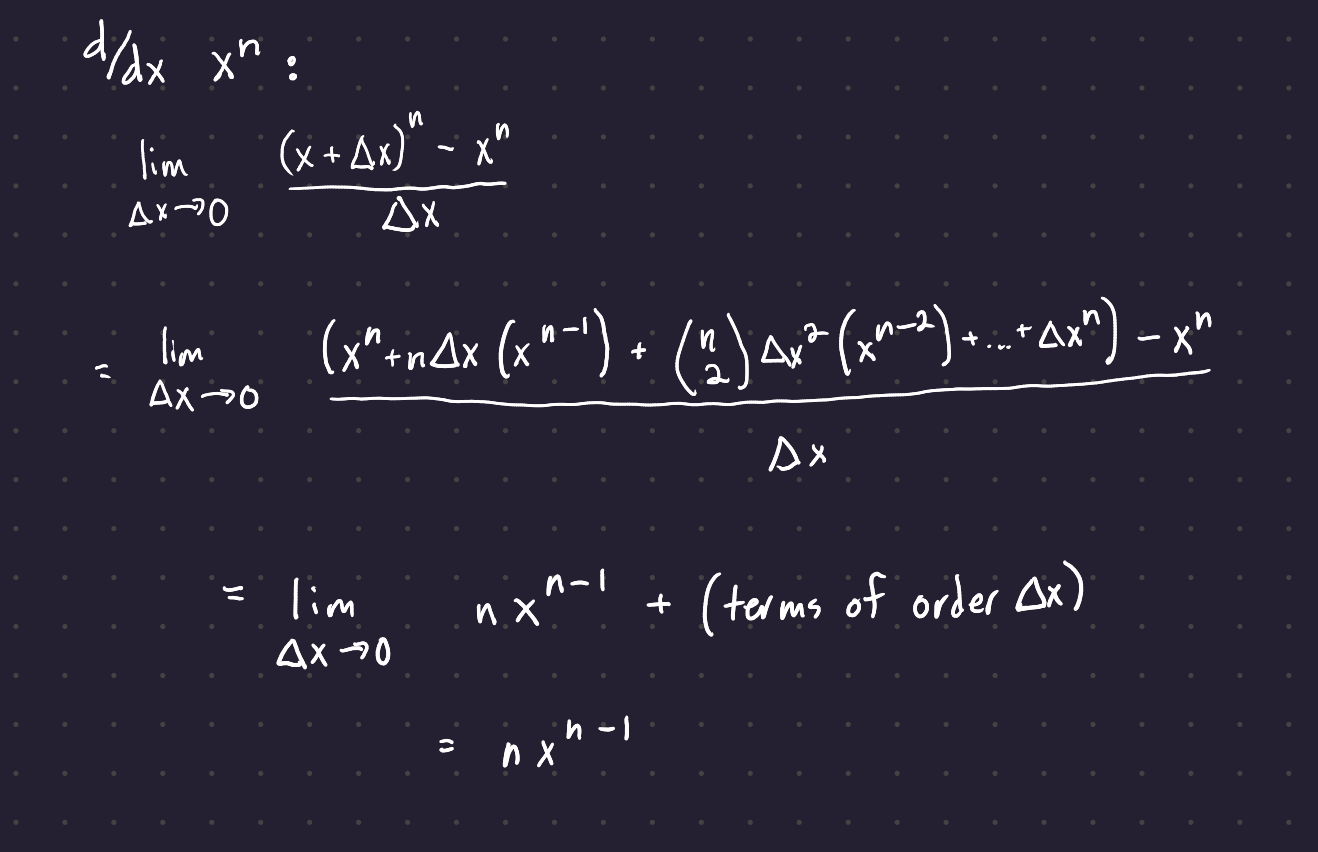 d/dx xⁿ :
lim Δx→0 ((x + Δx)ⁿ - xⁿ) / Δx
= lim Δx→0 ((xⁿ + nΔx (xⁿ⁻¹) + (n 2) Δx² (xⁿ⁻²) + ... + Δxⁿ) - xⁿ) / Δx
= lim Δx→0 n xⁿ⁻¹ + (terms of order Δx)
= n xⁿ⁻¹